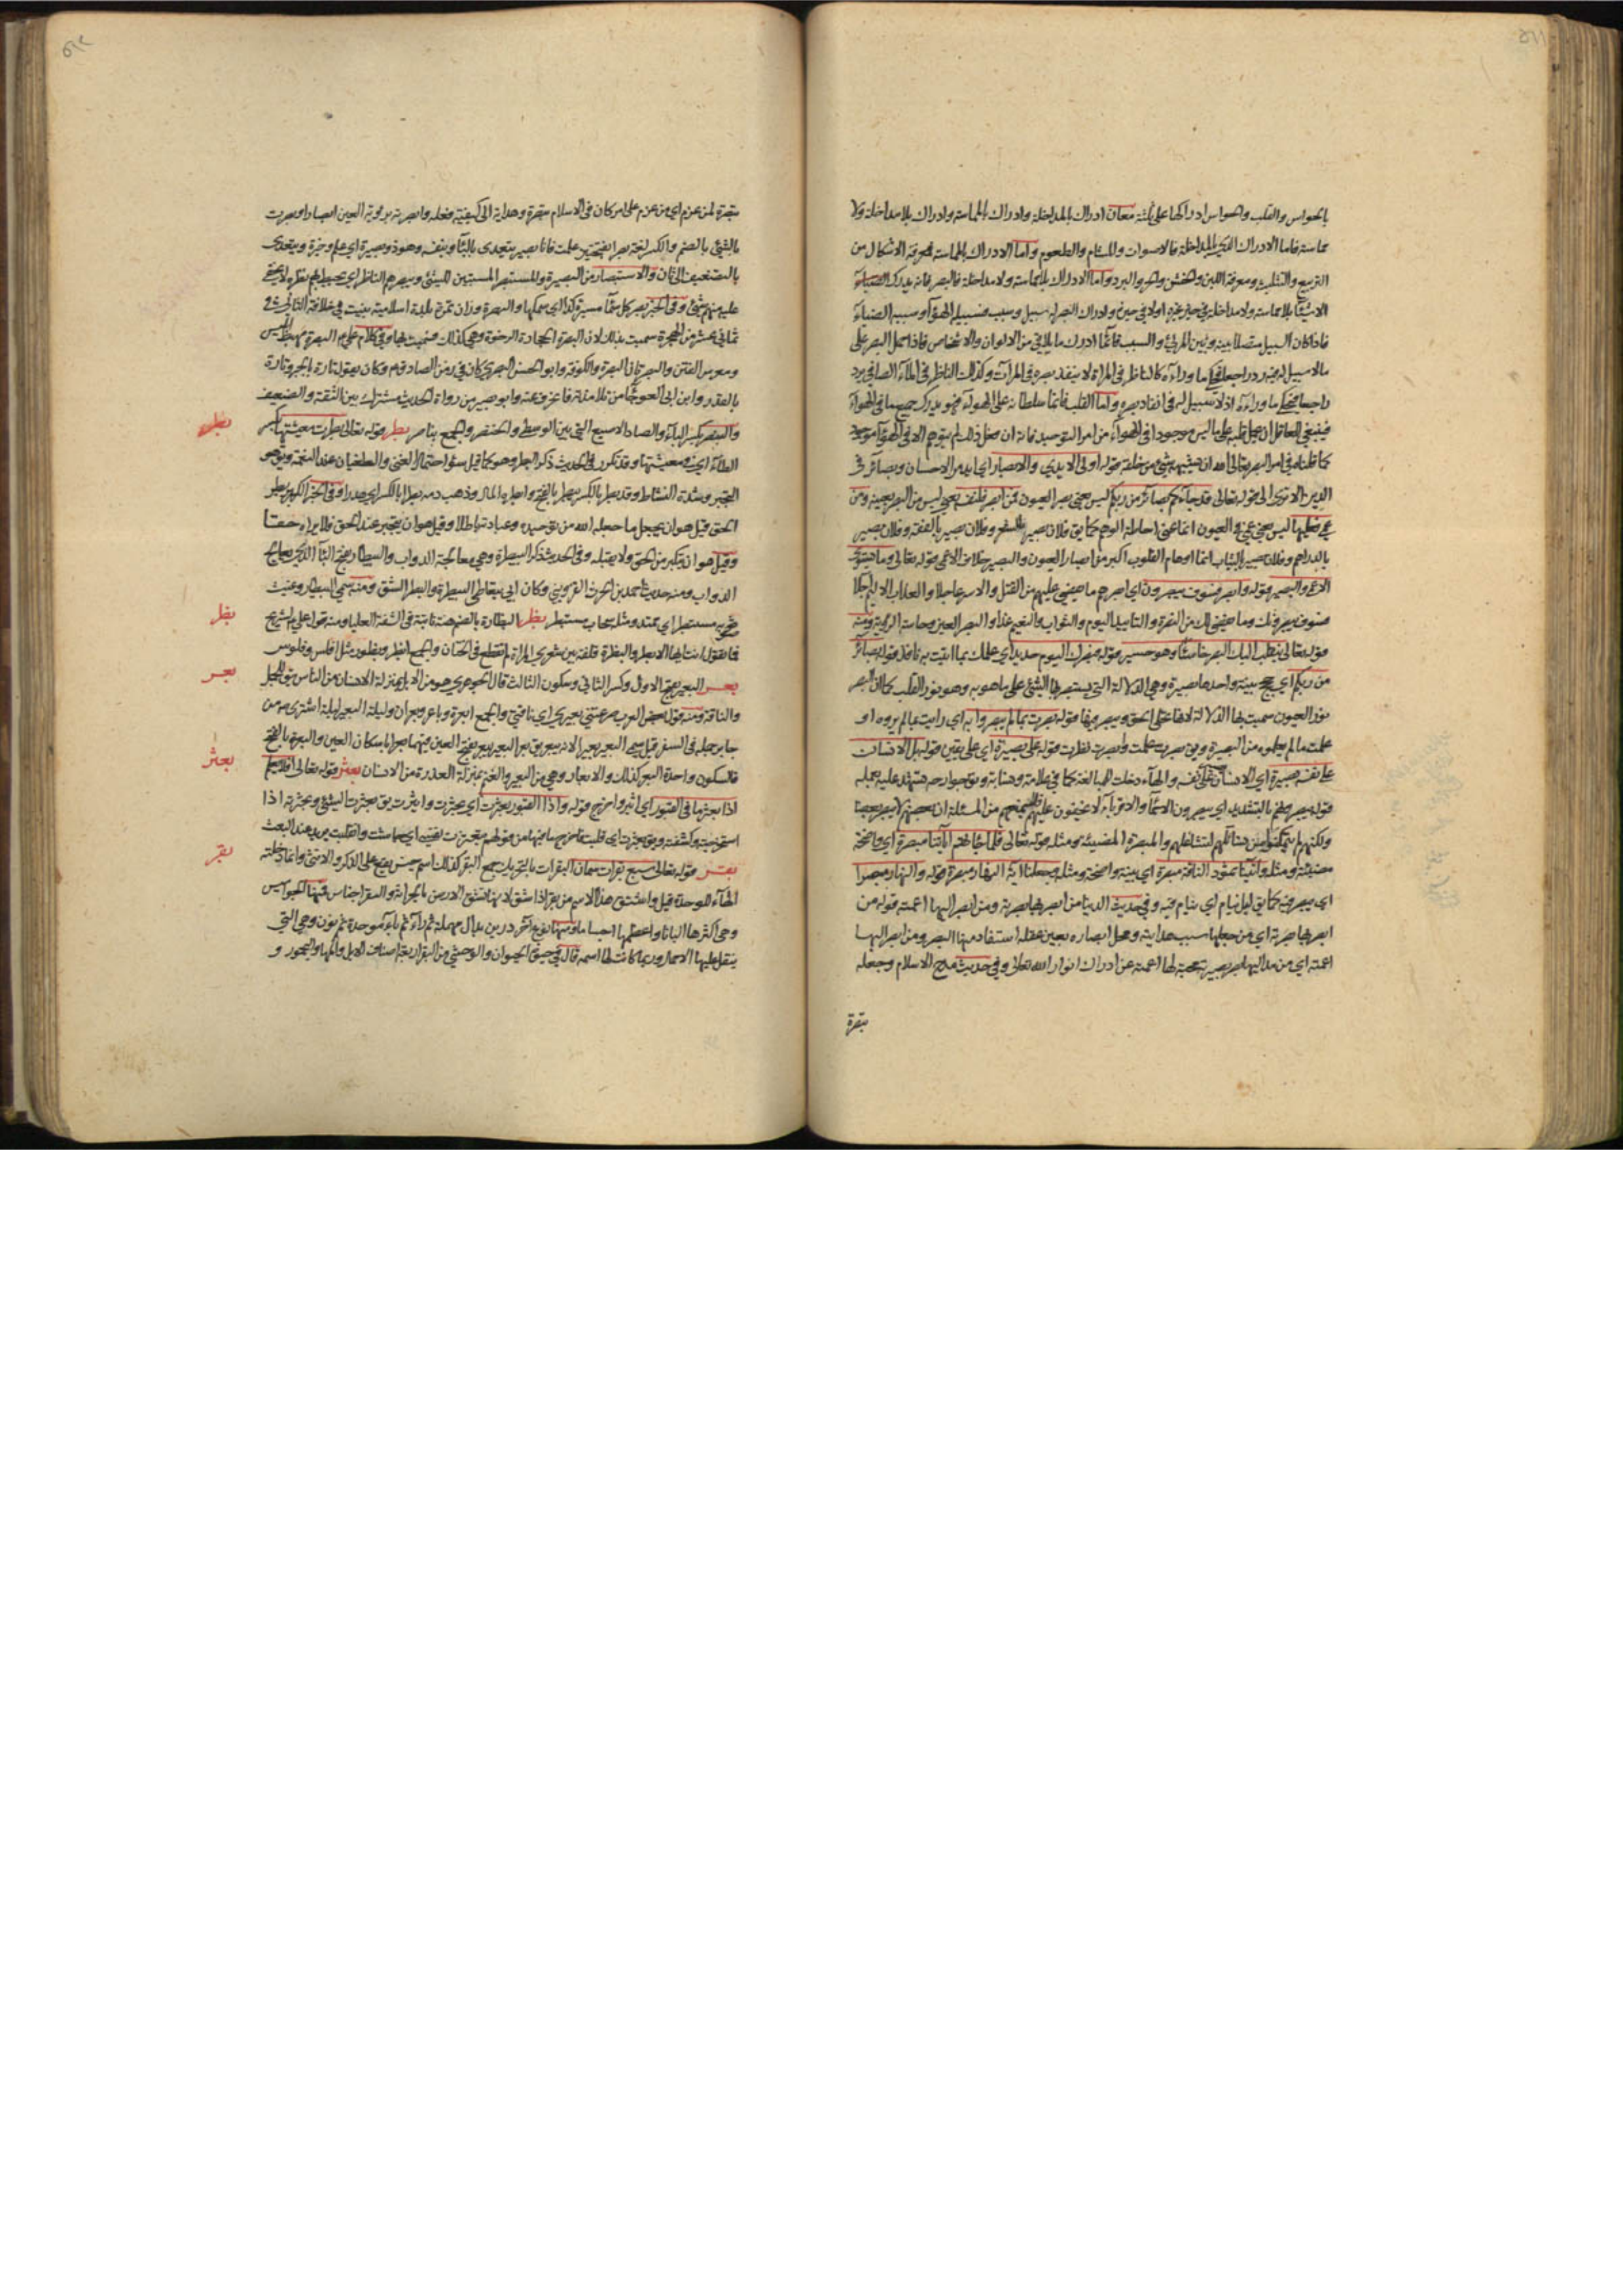 بالحواس والقلب والحواس ادراكها على ثلثة معان ادراك بالمداخلة وادراك بالمماسة وادراك بلا مداخلة ولا
مماسة فاما الادراك الذي بالمداخلة فالاصوات والمشام والطعوم واما الادراك بالمماسة فمعرفة الاشكال من
التربيع والتثليث ومعرفة اللين والخشن والحر والبرد واما الادراك بلا مماسة ولا مداخلة فالبصر فانه يدرك
الاشيآء بلا مماسة ولا مداخلة في حيز غيره ولا في حيزه وادراك البصر له سبيل وسبب فسبيله الهوآء وسببه الضيآء
فاذا كان السبيل متصلا بينه وبين المرئي والسبب قائما ادرك ما يلاقي من الالوان والاشخاص فاذا حمل البصر على
ما لا سبيل له فيه رجع راجعا فحكى ما ورآءه كالناظر في المرآة لا ينفذ بصره في المرآة وكذلك الناظر في المآء الصافي يرجع
راجعا فيحكي ما ورآءه اذ لا سبيل له في انفاذ بصره واما القلب فانما سلطانه على الهوآء فهو يدرك جميع ما في الهوآء
فينبغي للعاقل ان يحمل قلبه على ما ليس موجودا في الهوآء من امر التوحيد فانه ان فعل ذلك لم يتوهم الا في الهوآء موجود
كما قلناه في امر البصر تعالى الله ان يشبهه شيء من خلقه قوله اولي الايدي والابصار اي ايدي الاحسان وبصائر في
الدين الا ترى الى قوله تعالى قد جآءكم بصائر من ربكم ليس يعني بصر العيون فمن ابصر فلنفسه يعني ليس من البصر بعينه ومن
عمي فعليها ليس يعني عمي العيون انما عنى احاطة الوهم كما يق فلان بصير بالشعر وفلان بصير بالفقه وفلان بصير
بالدراهم وفلان بصير بالثياب انما اوهام القلوب اكبر من ابصار العيون والبصير خلاف الاعمى قوله تعالى وما يستوي
الاعمى والبصير قوله وابصرهم فسوف يبصرون اي ابصرهم ما يقضى عليهم من القتل والاسر عاجلا والعذاب الاليم اجلا
فسوف يبصرونك وما يقضى لك من النصرة والتاييد اليوم والثواب والنعيم غدا والبصر العين وحاسة الرؤية ومنه
قوله تعالى ينقلب اليك البصر خاسئا وهو حسير قوله فبصرك اليوم حديد اي علمك بما انت به نافذ قوله بصائر
من ربكم اي حجج بينة واحدها بصيرة وهي الدلالة التي يستبصر بها الشيء على ما هو به وهو نور القلب كما ان البصر
نور العيون سميت بها الدلالة لانها تجلي الحق ويبصر بها قوله بصرت بما لم يبصروا به اي رايت ما لم يروه او
علمت ما لم يعلموه من البصيرة ويق بصرت علمت وابصرت نظرت قوله على بصيرة اي على يقين قوله بل الانسان
على نفسه بصيرة اي الانسان بصير على نفسه والهآء دخلت للمبالغة كما في علامة ونسابة ويق جوارحه تشهد عليه بعمله
قوله يبصرونهم بالتشديد اي يبصرون الاحمآء والاقربآء فلا يخفون عليهم فلا يمنعهم من المسئلة ان بعضهم لا يبصر بعضا
ولكنهم لم يتمكنوا من تسائلهم لتشاغلهم والمبصرة المضيئة ومثله قوله تعالى فلما جائتهم آياتنا مبصرة اي واضحة
مضيئة ومثله وآتينا ثمود الناقة مبصرة اي بينة واضحة ومثله وجعلنا آية النهار مبصرة قوله والنهار مبصرا
اي يبصر فيه كما يق ليل نيام اي ينام فيه وفي حديث الدنيا من ابصر بها بصرته ومن ابصر اليها اعمته قوله من
ابصر بها بصرته اي من جعلها سبب هدايته ومحل ابصاره بعين عقله استفاد منها البصر ومن ابصر اليها
اعمته اي من مد اليها بصر بصيرته محبة لها اعمته عن ادراك انوار الله تعالى وفي حديث مدح الاسلام وجعله
تبصرة
تبصرة لمن عزم اي من عزم على امر كان في الاسلام تبصرة وهداية الى كيفية فعله وابصرته برؤية العين ابصارا وبصرت
بالشيء بالضم والكسر لغة بصرا بفتحتين علمت فانا بصير يتعدى بالبآء وبنفسه وهو ذو بصيرة اي علم وخبرة ويتعدى
بالتضعيف الى ثان والاستبصار من البصيرة والمستبصر المستبين للشيء ويبصرهم الناظر اي يحيط بهم نظره لا يخفى
عليه منهم شيء وفي الخبر بصر كل سمآء مسيرة كذا اي سمكها والبصرة وزان تمرة بلدة اسلامية بنيت في خلافة الثاني في
ثماني عشر من الهجرة سميت بذلك لان البصرة الحجارة الرخوة وهي كذلك فسميت بها وفي كلام علي ع البصرة مهبط ابليس
ومغرس الفتن والبصرتان البصرة والكوفة وابو الحسن البصري كان في زمن الصادق ع وكان يقول تارة بالجبر وتارة
بالقدر وابن ابي العوجآء من تلامذته فانحرف عنه وابو بصير من رواة الحديث مشترك بين الثقة والضعيف
والبنصر بكسر البآء والصاد الاصبع التي بين الوسطى والخنصر والجمع بناصر بطر قوله تعالى بطرت معيشتها بكسر
الطآء اي في معيشتها وقد تكرر في الحديث ذكر البطر وهو كما قيل سوء احتمال الغنى والطغيان عند النعمة ويق هو
التجبر وشدة النشاط وقد بطر بالكسر يبطر بالفتح وابطره المال وذهب دمه بطرا بالكسر اي هدرا وفي الخبر الكبر بطر
الحق قيل هو ان يجعل ما جعله الله من توحيده وعبادته باطلا وقيل هو ان يتجبر عند الحق فلا يراه حقا
وقيل هو ان يتكبر من الحق ولا يقبله وفي الحديث ذكر البيطرة وهي معالجة الدواب والبيطار بفتح البآء الذي يعالج
الدواب ومنه حديث احمد بن الحرث القزويني وكان ابي يتعاطى البيطرة والبطر الشق ومنه سمي البيطار وغيث
مستبطر اي ممتد ومثله سحاب مستبطر بظر البظارة بالضم هنة ناتية في الشفة العليا ومنه قول علي ع لشريح
فما تقول انت ايها الابظر والبظرة قلفة بين شفري المراة لم تقطع في الختان والجمع ابظر وبظور مثل افلس وفلوس
بعر البعير بفتح الاول وكسر الثاني وسكون الثالث قال الجوهري هو من الابل بمنزلة الانسان من الناس يق للجمل
والناقة ومنه قول بعض العرب صرعتني بعيري اي ناقتي والجمع ابعرة وباعر وبعران وليلة البعير ليلة اشترى ص من
جابر جمله في السفر قيل سمي البعير بعيرا لانه يبعر يق بعر البعير يبعر بفتح العين فيهما بعرا باسكان العين والبعرة بالفتح
فالسكون واحدة البعر كذلك والابعار وهي من البعير والغنم بمنزلة العذرة من الانسان بعثر قوله تعالى افلا يعلم
اذا بعثر ما في القبور اي اثير واخرج قوله واذا القبور بعثرت اي بحثرت واثيرت يق بعثرت الشيء وبحثرته اذا
استخرجته وكشفته ويق بعثرت اي قلبت فاخرج ما فيها من قولهم تبعثرت نفسي اي جاشت وانقلبت يريد عند البعث
بقر قوله تعالى سبع بقرات سمان البقرات بالتحريك جمع البقر كذلك اسم جنس يقع على الذكر والانثى وانما دخلته
الهآء للوحدة قيل واشتق هذا الاسم من بقر اذا شق لانها تشق الارض بالحراثة والبقر اجناس فمنها الجواميس
وهي اكثرها البانا واعظمها اجساما ومنها نوع آخر دربن بدال مهملة ثم رآء ثم بآء موحدة ثم نون وهي التي
ينقل عليها الاحمال وربما كانت لها اسمه قال في حيوة الحيوان والوحشي من البقر اربعة اصناف الايل والمها واليحمور و
بطر
بظر
بعر
بعثر
بقر